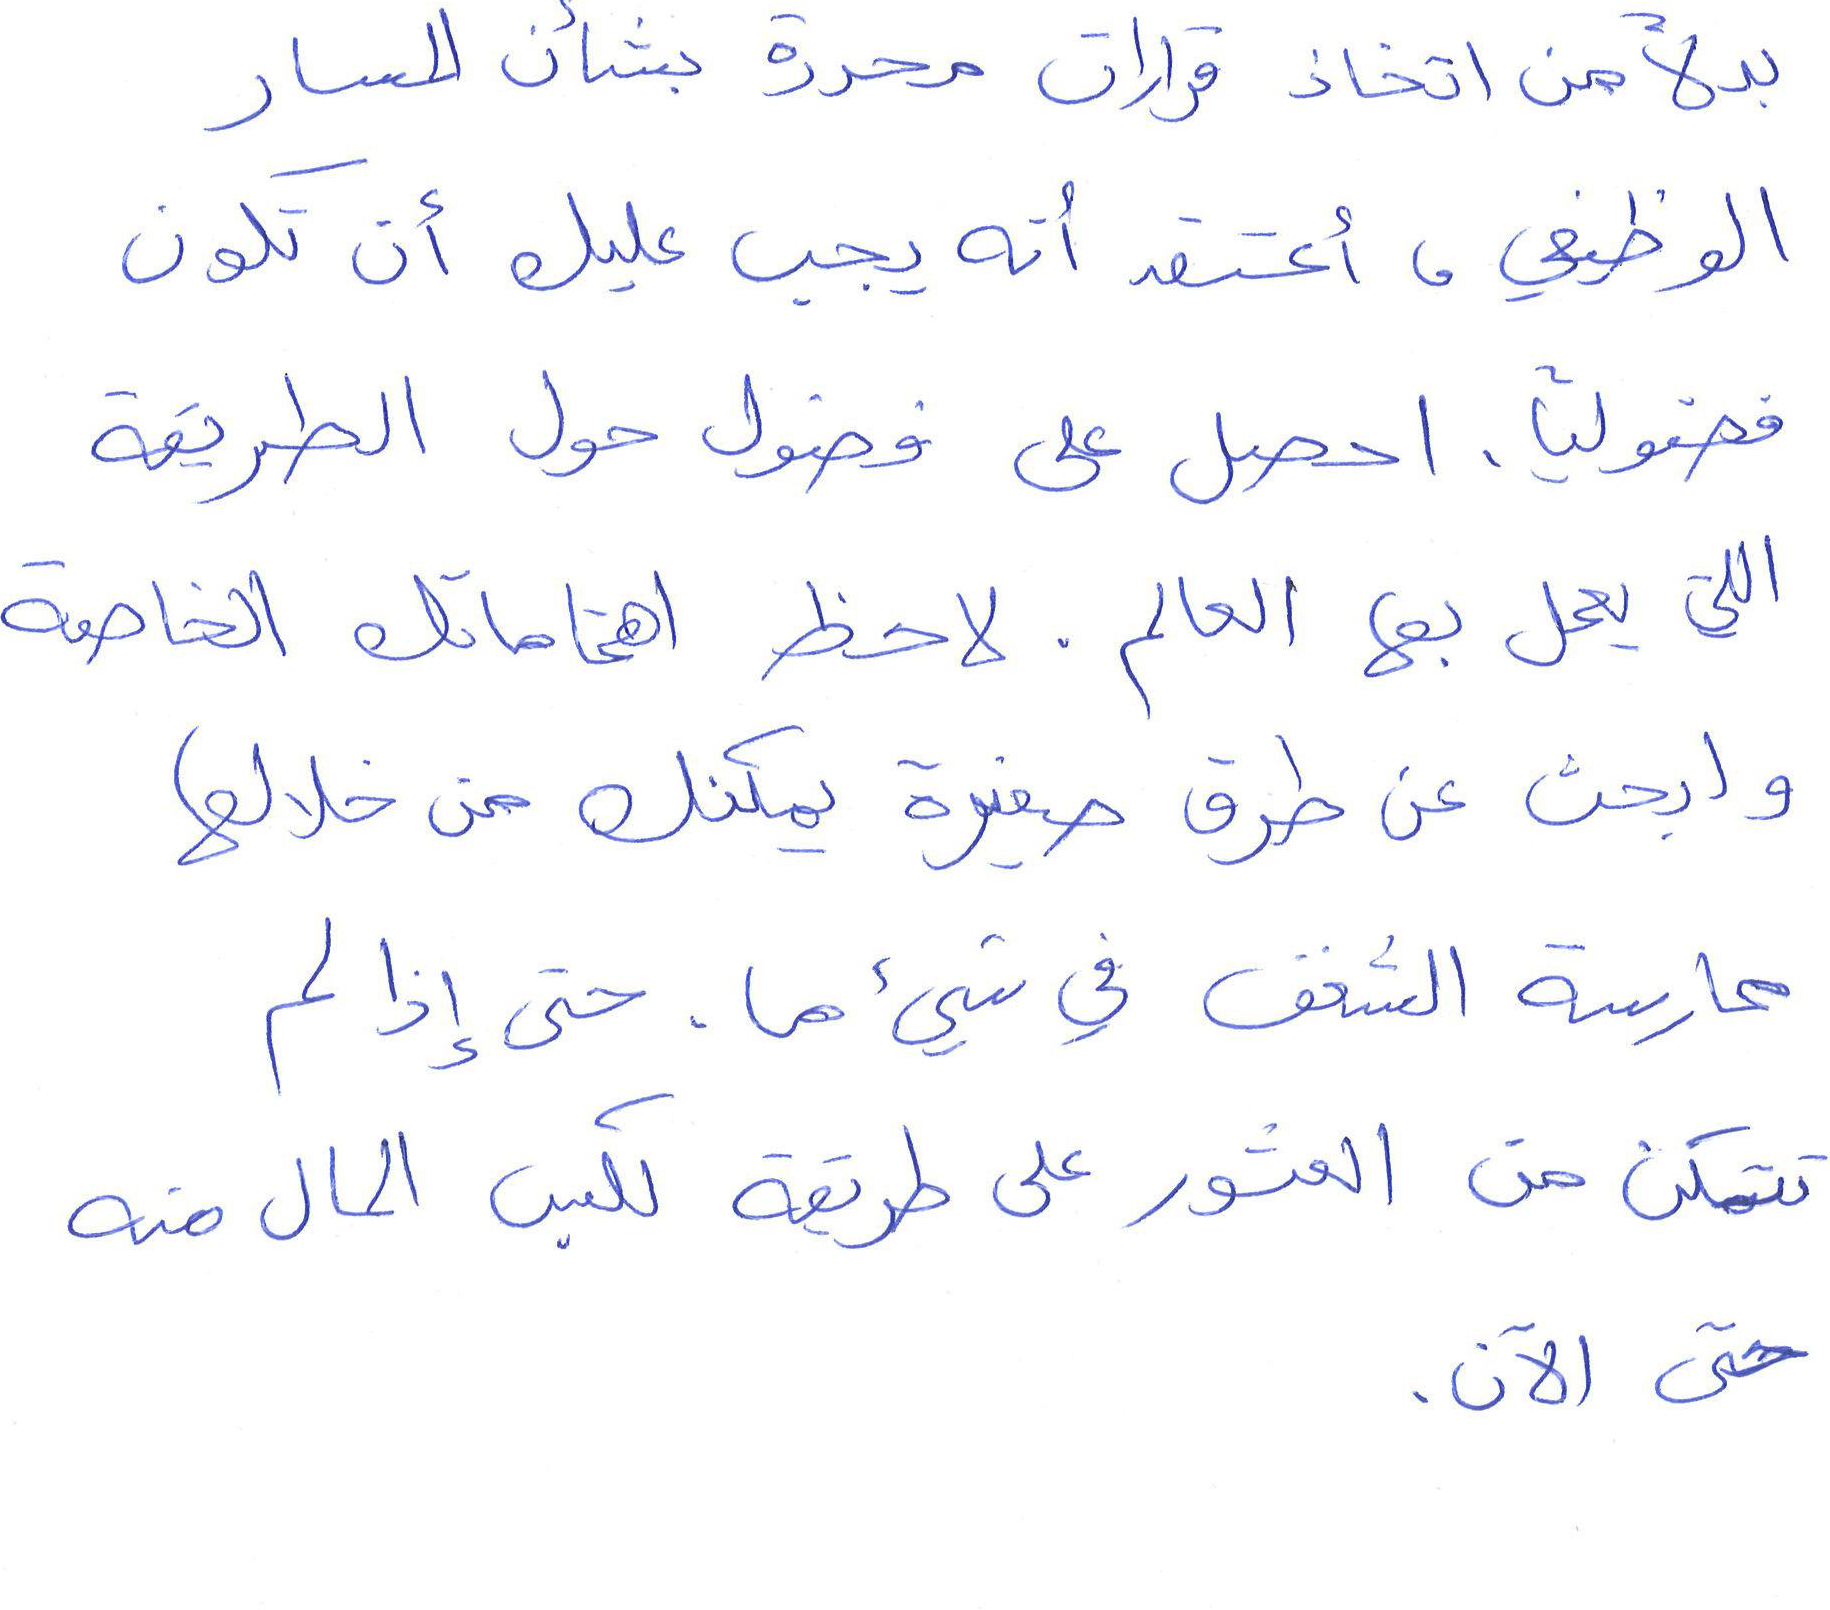 بدلاً من اتخاذ قرارات محددة بشأن المسار
الوظيفي ، أعتقد أنه يجب عليك أن تكون
فضوليًا. احصل على فضول حول الطريقة
التي يعمل بها العالم. لاحظ اهتماماتك الخاصة
وابحث عن طرق صغيرة يمكنك من خلالها
ممارسة الشغف في شيء ما. حتى إذا لم
تتمكن من العثور على طريقة لكسب المال منه
حتى الآن.